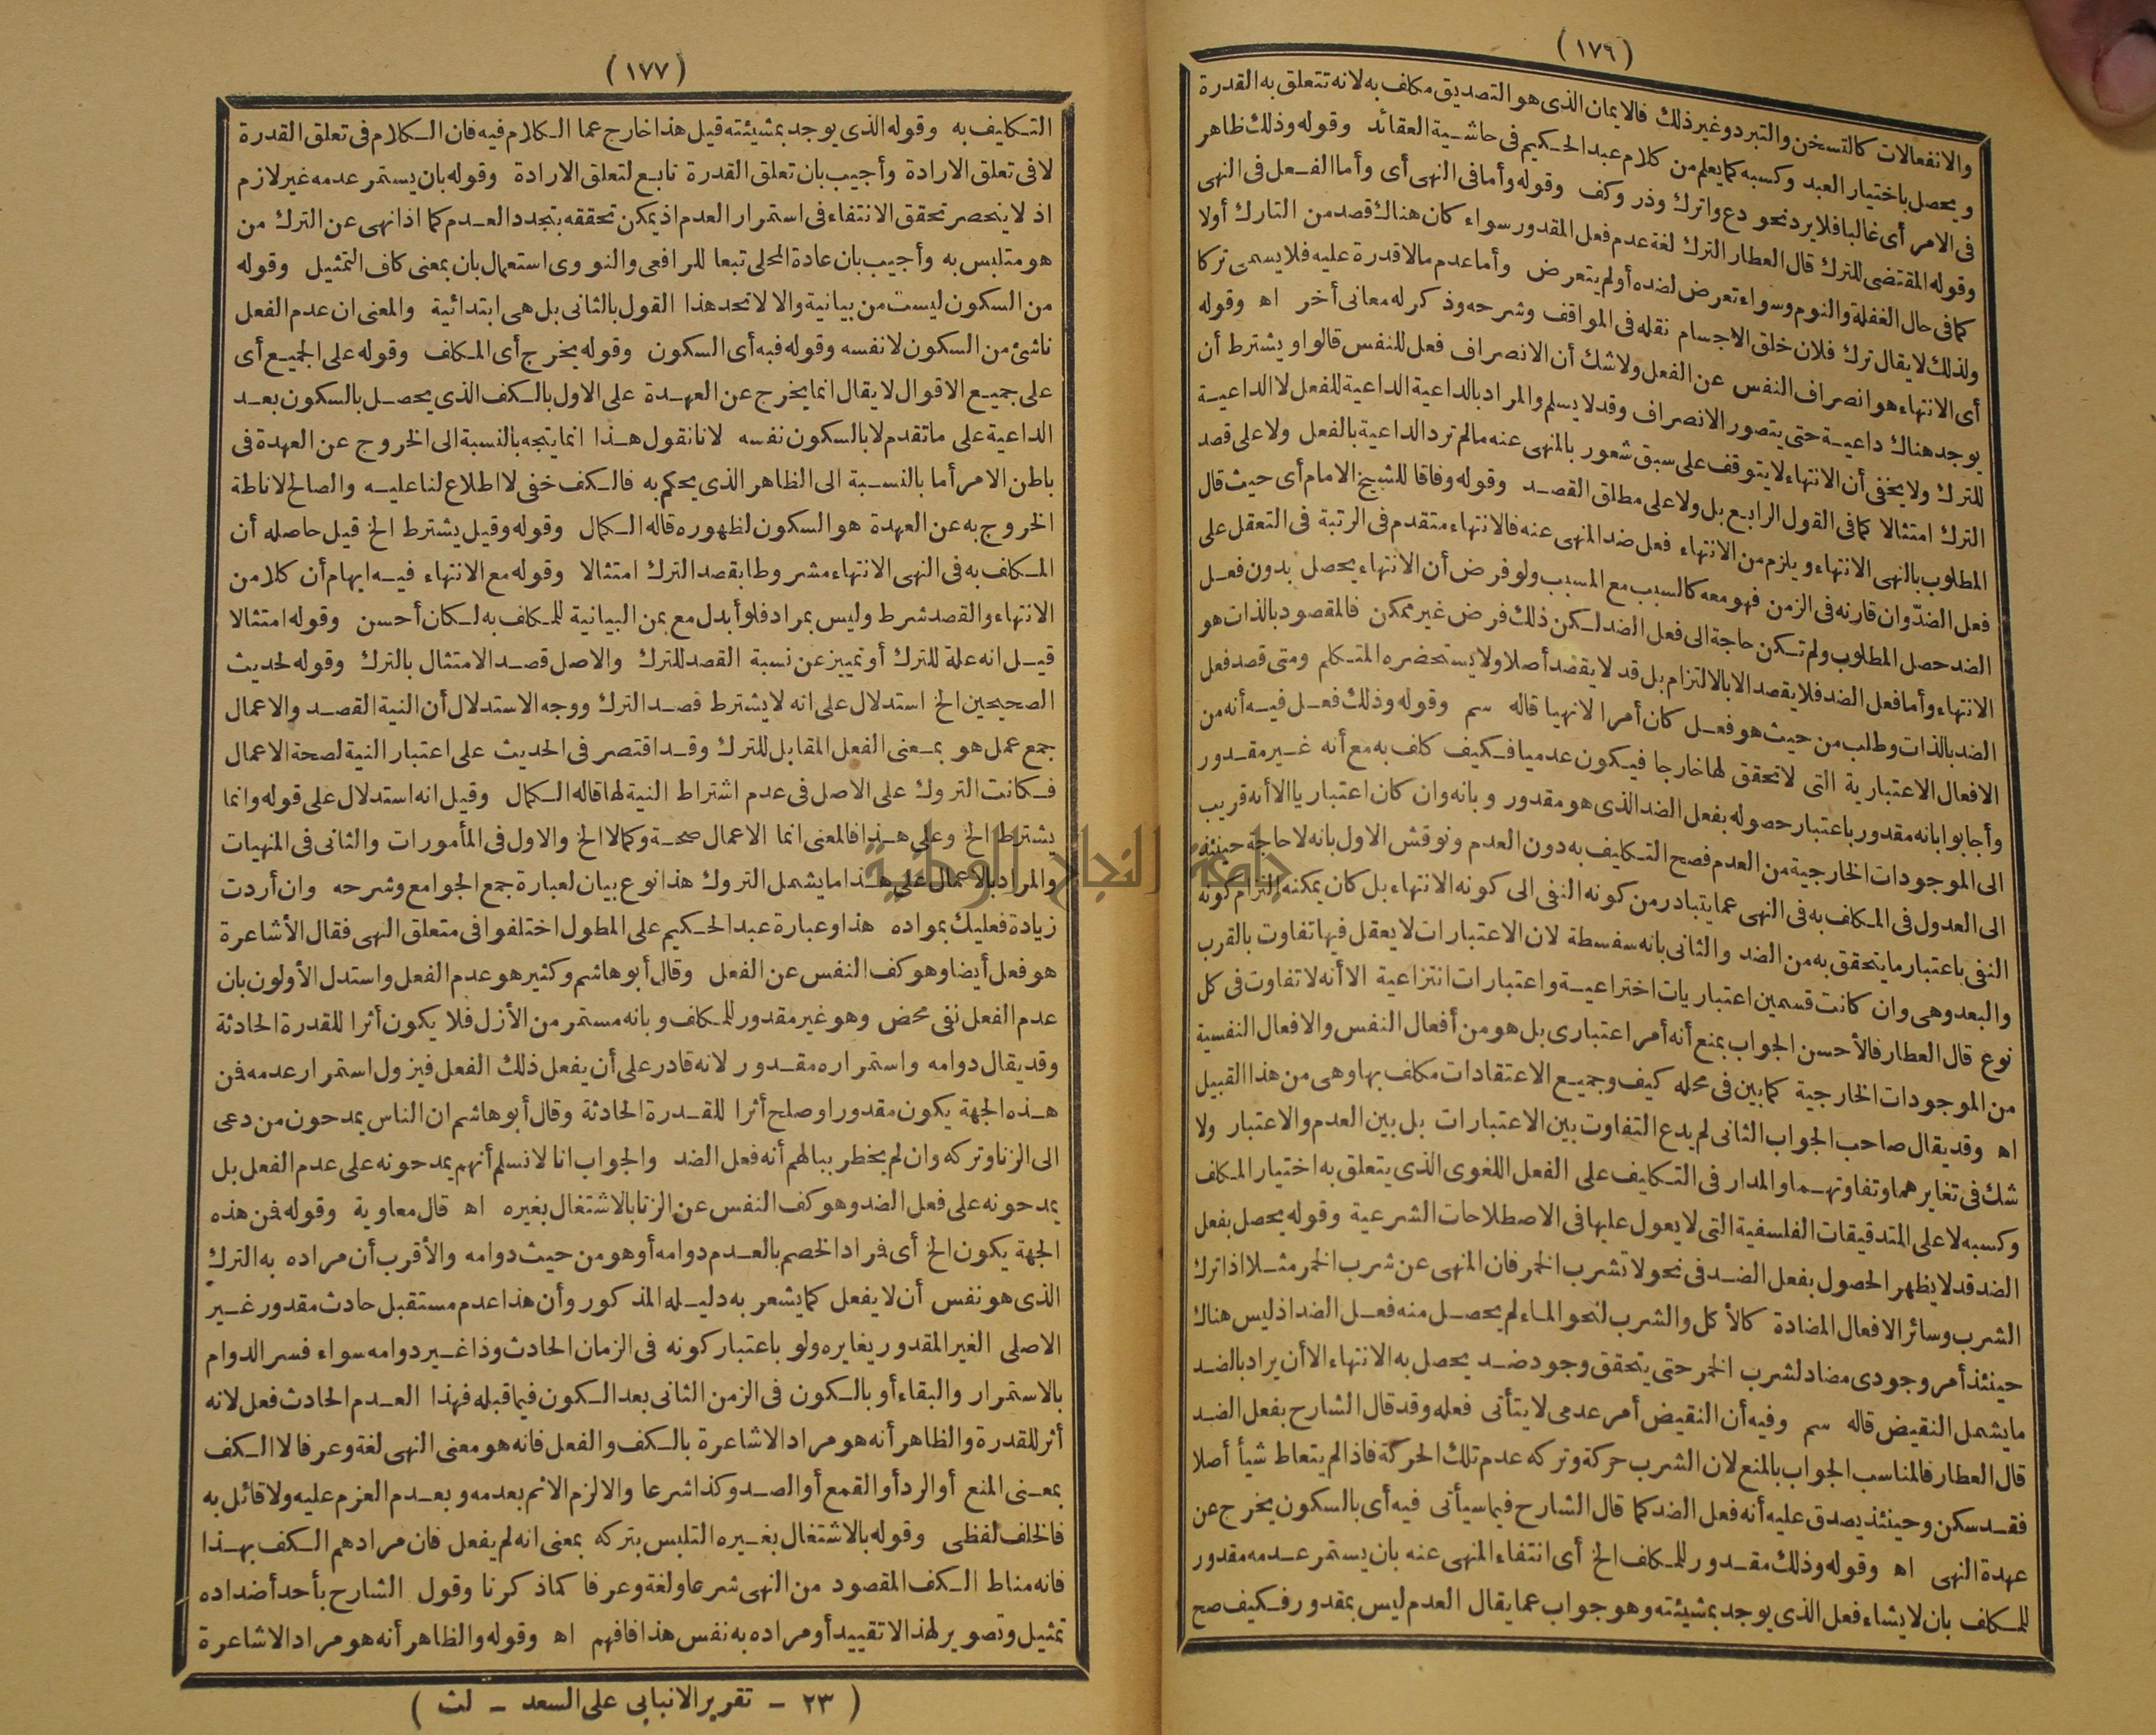 (١٧٦)
والانفعالات كالتسخن والتبرد وغير ذلك فالايمان الذى هو التصديق مكلف به لانه تتعلق به القدرة
ويحصل باختيار العبد وكسبه كما يعلم من كلام عبد الحكيم فى حاشية العقائد وقوله وذلك ظاهر
فى الامر أى غالبا فلا يرد نحو دع واترك وذر وكف وقوله وأما فى النهى أى وأما الفعل فى النهى
وقوله المقتضى للترك قال العطار الترك لغة عدم فعل المقدور سواء كان هناك قصد من التارك أولا
كما فى حال الغفلة والنوم وسواء تعرض لضده أولم يتعرض وأما عدم مالا قدرة عليه فلا يسمى تركا
ولذلك لا يقال ترك فلان خلق الاجسام نقله فى المواقف وشرحه وذكر له معانى أخر اه وقوله
أى الانتهاء هو انصراف النفس عن الفعل ولا شك أن الانصراف فعل للنفس قالوا ويشترط أن
يوجد هناك داعية حتى يتصور الانصراف وقد لا يسلم والمراد بالداعية الداعية للفعل لا الداعية
للترك ولا يخفى أن الانتهاء لا يتوقف على سبق شعور بالمنهى عنه مالم ترد الداعية بالفعل ولا على قصد
الترك امتثالا كما فى القول الرابع بل ولا على مطلق القصد وقوله وفاقا للشيخ الامام أى حيث قال
المطلوب بالنهى الانتهاء ويلزم من الانتهاء فعل ضد المنهى عنه فالانتهاء متقدم فى الرتبة فى التعقل على
فعل الضدّ وان قارنه فى الزمن فهو معه كالسبب مع المسبب ولو فرض أن الانتهاء يحصل بدون فعل
الضد حصل المطلوب ولم تكن حاجة الى فعل الضد لكن ذلك فرض غير ممكن فالمقصود بالذات هو
الانتهاء وأما فعل الضد فلا يقصد الا بالالتزام بل قد لا يقصد أصلا ولا يستحضره المتكلم ومتى قصد فعل
الضد بالذات وطلب من حيث هو فعل كان أمرا لا نهيا قاله سم وقوله وذلك فعل فيه أنه من
الافعال الاعتبارية التى لا تحقق لها خارجا فيكون عدميا فكيف كلف به مع أنه غير مقدور
وأجابوا بانه مقدور باعتبار حصوله بفعل الضد الذى هو مقدور وبانه وان كان اعتباريا الا أنه قريب
الى الموجودات الخارجية من العدم فصح التكليف به دون العدم ونوقش الاول بانه لا حاجة حينئذ
الى العدول فى المكلف به فى النهى عما يتبادر من كونه النفى الى كونه الانتهاء بل كان يمكنه التزام كونه
النفى باعتبار ما يتحقق به من الضد والثانى بانه سفسطة لان الاعتبارات لا يعقل فيها تفاوت بالقرب
والبعد وهى وان كانت قسمين اعتباريات اختراعية واعتبارات انتزاعية الا أنه لا تفاوت فى كل
نوع قال العطار فالأحسن الجواب بمنع أنه أمر اعتبارى بل هو من أفعال النفس والافعال النفسية
من الموجودات الخارجية كما بين فى محله كيف وجميع الاعتقادات مكلف بها وهى من هذا القبيل
اه وقد يقال صاحب الجواب الثانى لم يدع التفاوت بين الاعتبارات بل بين العدم والاعتبار ولا
شك فى تغايرهما وتفاوتهما والمدار فى التكليف على الفعل اللغوى الذى يتعلق به اختيار المكلف
وكسبه لا على التدقيقات الفلسفية التى لا يعول عليها فى الاصطلاحات الشرعية وقوله يحصل بفعل
الضد قد لا يظهر الحصول بفعل الضد فى نحو لا تشرب الخمر فان المنهى عن شرب الخمر مثلا اذا ترك
الشرب وسائر الافعال المضادة كالأكل والشرب لنحو الماء لم يحصل منه فعل الضد اذ ليس هناك
حينئذ أمر وجودى مضاد لشرب الخمر حتى يتحقق وجود ضد يحصل به الانتهاء الا أن يراد بالضد
ما يشمل النقيض قاله سم وفيه أن النقيض أمر عدمى لا يتأتى فعله وقد قال الشارح بفعل الضد
قال العطار فالمناسب الجواب بالمنع لان الشرب حركة وتركه عدم تلك الحركة فاذا لم يتعاط شيأ أصلا
فقد سكن وحينئذ يصدق عليه أنه فعل الضد كما قال الشارح فيما سيأتى فيه أى بالسكون يخرج عن
عهدة النهى اه وقوله وذلك مقدور للمكلف الخ أى انتفاء المنهى عنه بان يستمر عدمه مقدور
للمكلف بان لا يشاء فعل الذى يوجد بمشيئته وهو جواب عما يقال العدم ليس بمقدور فكيف صح
(١٧٧)
التكليف به وقوله الذى يوجد بمشيئته قيل هذا خارج عما الكلام فيه فان الكلام فى تعلق القدرة
لا فى تعلق الارادة وأجيب بان تعلق القدرة تابع لتعلق الارادة وقوله بان يستمر عدمه غير لازم
اذ لا ينحصر تحقق الانتفاء فى استمرار العدم اذ يمكن تحققه بتجدد العدم كما اذا نهى عن الترك من
هو متلبس به وأجيب بان عادة المحلى تبعا للرافعى والنووى استعمال بان بمعنى كاف التمثيل وقوله
من السكون ليست من بيانية والا لاتحد هذا القول بالثانى بل هى ابتدائية والمعنى ان عدم الفعل
ناشئ من السكون لا نفسه وقوله فيه أى السكون وقوله يخرج أى المكلف وقوله على الجميع أى
على جميع الاقوال لا يقال انما يخرج عن العهدة على الاول بالكف الذى يحصل بالسكون بعد
الداعية على ما تقدم لا بالسكون نفسه لانا نقول هذا انما يتجه بالنسبة الى الخروج عن العهدة فى
باطن الامر أما بالنسبة الى الظاهر الذى يحكم به فالكف خفى لا اطلاع لنا عليه والصالح لاناطة
الخروج به عن العهدة هو السكون لظهوره قاله الكمال وقوله وقيل يشترط الخ قيل حاصله أن
المكلف به فى النهى الانتهاء مشروطا بقصد الترك امتثالا وقوله مع الانتهاء فيه ايهام أن كلا من
الانتهاء والقصد شرط وليس بمراد فلو أبدل مع بمن البيانية للمكلف به لكان أحسن وقوله امتثالا
قيل انه علة للترك أو تمييز عن نسبة القصد للترك والاصل قصد الامتثال بالترك وقوله لحديث
الصحيحين الخ استدلال على انه لا يشترط قصد الترك ووجه الاستدلال أن النية القصد والاعمال
جمع عمل هو بمعنى الفعل المقابل للترك وقد اقتصر فى الحديث على اعتبار النية لصحة الاعمال
فكانت التروك على الاصل فى عدم اشتراط النية لها قاله الكمال وقيل انه استدلال على قوله وانما
يشترط الخ وعلى هذا فالمعنى انما الاعمال صحة وكمالا الخ والاول فى المأمورات والثانى فى المنهيات
والمراد بالاعمال على هذا ما يشمل التروك هذا نوع بيان لعبارة جمع الجوامع وشرحه وان أردت
زيادة فعليك بمواده هذا وعبارة عبد الحكيم على المطول اختلفوا فى متعلق النهى فقال الأشاعرة
هو فعل أيضا وهو كف النفس عن الفعل وقال أبو هاشم وكثير هو عدم الفعل واستدل الأولون بان
عدم الفعل نفى محض وهو غير مقدور للمكلف وبانه مستمر من الأزل فلا يكون أثرا للقدرة الحادثة
وقد يقال دوامه واستمراره مقدور لانه قادر على أن يفعل ذلك الفعل فيزول استمرار عدمه فمن
هذه الجهة يكون مقدورا وصلح أثرا للقدرة الحادثة وقال أبو هاشم ان الناس يمدحون من دعى
الى الزنا وتركه وان لم يخطر ببالهم أنه فعل الضد والجواب انا لا نسلم أنهم يمدحونه على عدم الفعل بل
يمدحونه على فعل الضد وهو كف النفس عن الزنا بالاشتغال بغيره اه قال معاوية وقوله فمن هذه
الجهة يكون الخ أى فمراد الخصم بالعدم دوامه أو هو من حيث دوامه والأقرب أن مراده به الترك
الذى هو نفس أن لا يفعل كما يشعر به دليله المذكور وأن هذا عدم مستقبل حادث مقدور غير
الاصلى الغير المقدور يغايره ولو باعتبار كونه فى الزمان الحادث وذا غير دوامه سواء فسر الدوام
بالاستمرار والبقاء أو بالكون فى الزمن الثانى بعد الكون فيما قبله فهذا العدم الحادث فعل لانه
أثر للقدرة والظاهر أنه هو مراد الاشاعرة بالكف والفعل فانه هو معنى النهى لغة وعرفا لا الكف
بمعنى المنع أو الرد أو القمع أو الصد وكذا شرعا والا لزم الاثم بعدمه وبعدم العزم عليه ولا قائل به
فالخلف لفظى وقوله بالاشتغال بغيره التلبس بتركه بمعنى انه لم يفعل فان مرادهم الكف بهذا
فانه مناط الكف المقصود من النهى شرعا ولغة وعرفا كما ذكرنا وقول الشارح بأحد أضداده
تمثيل وتصوير لهذا لا تقييد أو مراده به نفس هذا فافهم اه وقوله والظاهر أنه هو مراد الاشاعرة
(٢٣ - تقرير الانبابى على السعد - لث)
جامعة النجاح الوطنية